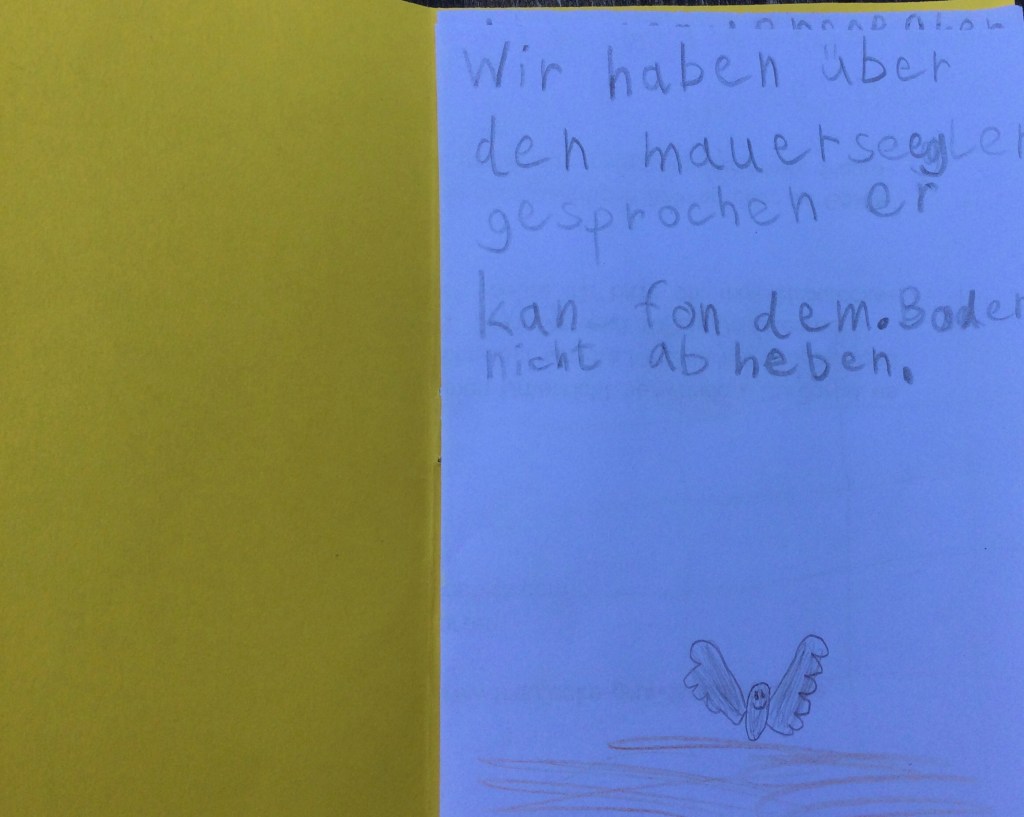 Wir haben über
den mauerseegler
gesprochen er
kan fon dem.Boden
nicht ab heben.